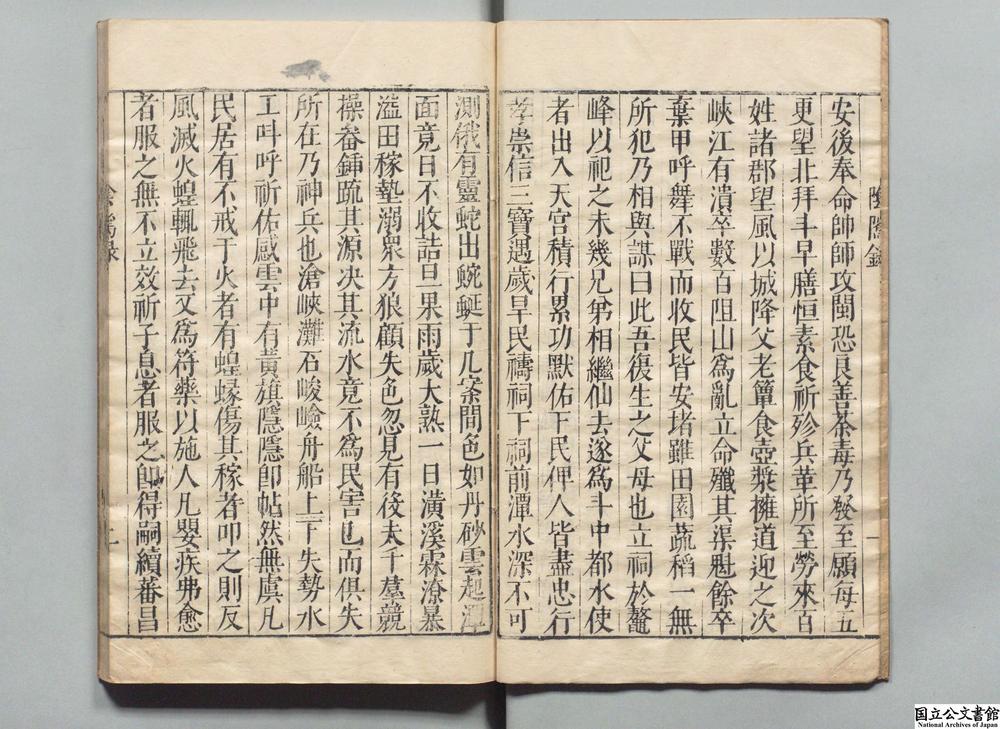 陰隲錄
安後奉命帥師攻閩恐良善荼毒乃發至願每五
更望北拜斗早膳恒素食祈殄兵革所至勞來百
姓諸郡望風以城降父老簞食壺漿擁道迎之次
峽江有潰卒數百阻山爲亂立命殲其渠魁餘卒
棄甲呼舞不戰而收民皆安堵雖田園蔬稻一無
所犯乃相與謀曰此吾復生之父母也立祠於鼇
峰以祀之未幾兄弟相繼仙去遂爲斗中都水使
者出入天宮積行累功默佑下民俾人皆盡忠行
孝崇信三寶遇歲旱民禱祠下祠前潭水深不可
測俄有靈蛇出蜿蜒于几案間色如丹砂雲起潭
面竟日不收詰旦果雨歲大熟一日潢溪霖潦暴
溢田稼墊溺眾方狼顧失色忽見有後夫千羣競
操畚鍤疏其源决其流水竟不爲民害已而俱失
所在乃神兵也滄峽灘石峻嶮舟船上下失勢水
工呌呼祈佑感雲中有黃旗隱隱卽帖然無虞凡
民居有不戒于火者有蝗蝝傷其稼者叩之則反
風滅火蝗輒飛去又爲符藥以施人凡嬰疾弗愈
者服之無不立效祈子息者服之卽得嗣續蕃昌
国立公文書館
National Archives of Japan